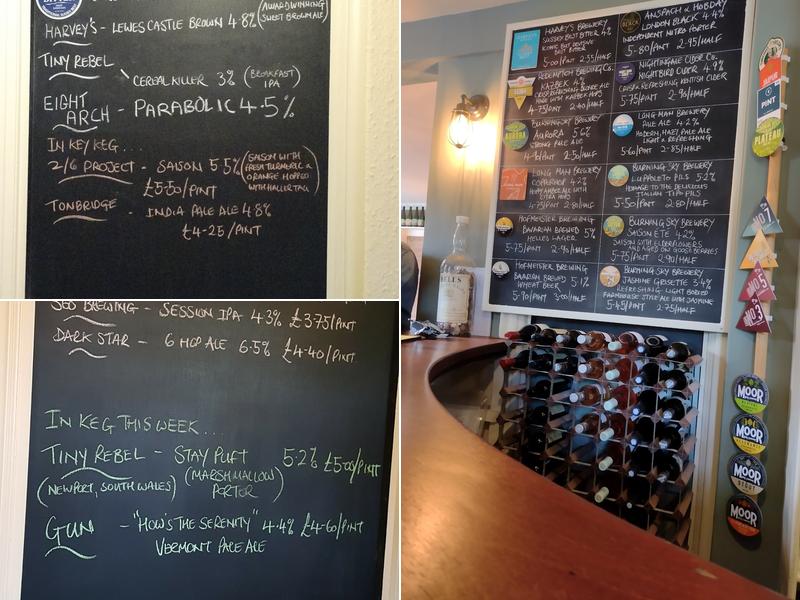 (AWARD WINNING
SWEET BROWN ALE)
HARVEY'S - LEWES CASTLE BROWN 4.8%
TINY REBEL
CEREAL KILLER 3% (BREAKFAST IPA)
EIGHT ARCH - PARABOLIC 4.5%
IN KEY/KEG....
2/6 PROJECT - SAISON 5.5% (SAISON WITH
FRESH TURMERIC &
ORANGE HOPPED
WITH HALLERTAU)
£5.50/PINT
TONBRIDGE - INDIA PALE ALE 4.8%
£4-25/PINT
BREWING - SESSION IPA 4.3% £3.75/PINT
DARK STAR - 6 HOP ALE 6.5% £4.40/PINT
IN KEG THIS WEEK...
TINY REBEL - STAY PUFT 5.2% £5.00/PINT
(NEWPORT, SOUTH WALES) (MARSHMALLOW
PORTER)
GUN - "HOW'S THE SERENITY" 4.4% £4.60/PINT
VERMONT PALE ALE
HARVEY'S BREWERY
SUSSEX BEST BITTER 4%
ICONIC BUT DIVISIVE
BEST BITTER
5-00/PINT 2-55/HALF
REDEMPTION BREWING CO.
KAZBEK 4%
CRISP REFRESHING BLONDE ALE
MADE WITH KAZBEK HOPS
4-75/PINT 2-40/HALF
BURNING SKY BREWERY
AURORA 5.6%
STRONG PALE ALE
2-50/HALF
LONG MAN BREWERY
COPPER HOP 4.2%
HOPPY AMBER ALE WITH
CITRA HOPS
4-75/PINT 2-80/HALF
HOFMEISTER BREWING
BAVARIAN BREWED 5%
HELLES LAGER
5-75/PINT 2-90/HALF
HOFMEISTER BREWING
BAVARIAN BREWED 5.1%
WHEAT BEER
5-90/PINT 3-00/HALF
ANSPACH & HOBDAY
LONDON BLACK 4.4%
INDEPENDENT NITRO PORTER
5-80/PINT 2-95/HALF
NIGHTINGALE CIDER CO.
NIGHTBIRD CIDER 4.9%
CRISP & REFRESHING KENTISH CIDER
5-75/PINT 2-90/HALF
LONG MAN BREWERY
PALE ALE 4.2%
MODERN, HAZY PALE ALE
LIGHT & REFRESHING
5-60/PINT 2-85/HALF
BURNING SKY BREWERY
LUPPOLETO PILS 5.2%
HOMAGE TO THE DELICIOUS
ITALIAN TIPO PILS
5-50/PINT 2-80/HALF
BURNING SKY BREWERY
SAISON ÉTÉ 4.2%
SAISON WITH ELDERFLOWERS
AND AGED ON GOOSEBERRIES
5-75/PINT 2-90/HALF
BURNING SKY BREWERY
JASMINE GRISETTE 3.4%
REFRESHING LIGHT BODIED
FARMHOUSE STYLE ALE WITH JASMINE
5-45/PINT 2-75/HALF
PINT
PLATEAU
Nº7
Nº5
Nº3
MOOR
MOOR
MOOR
STOUT
MOOR